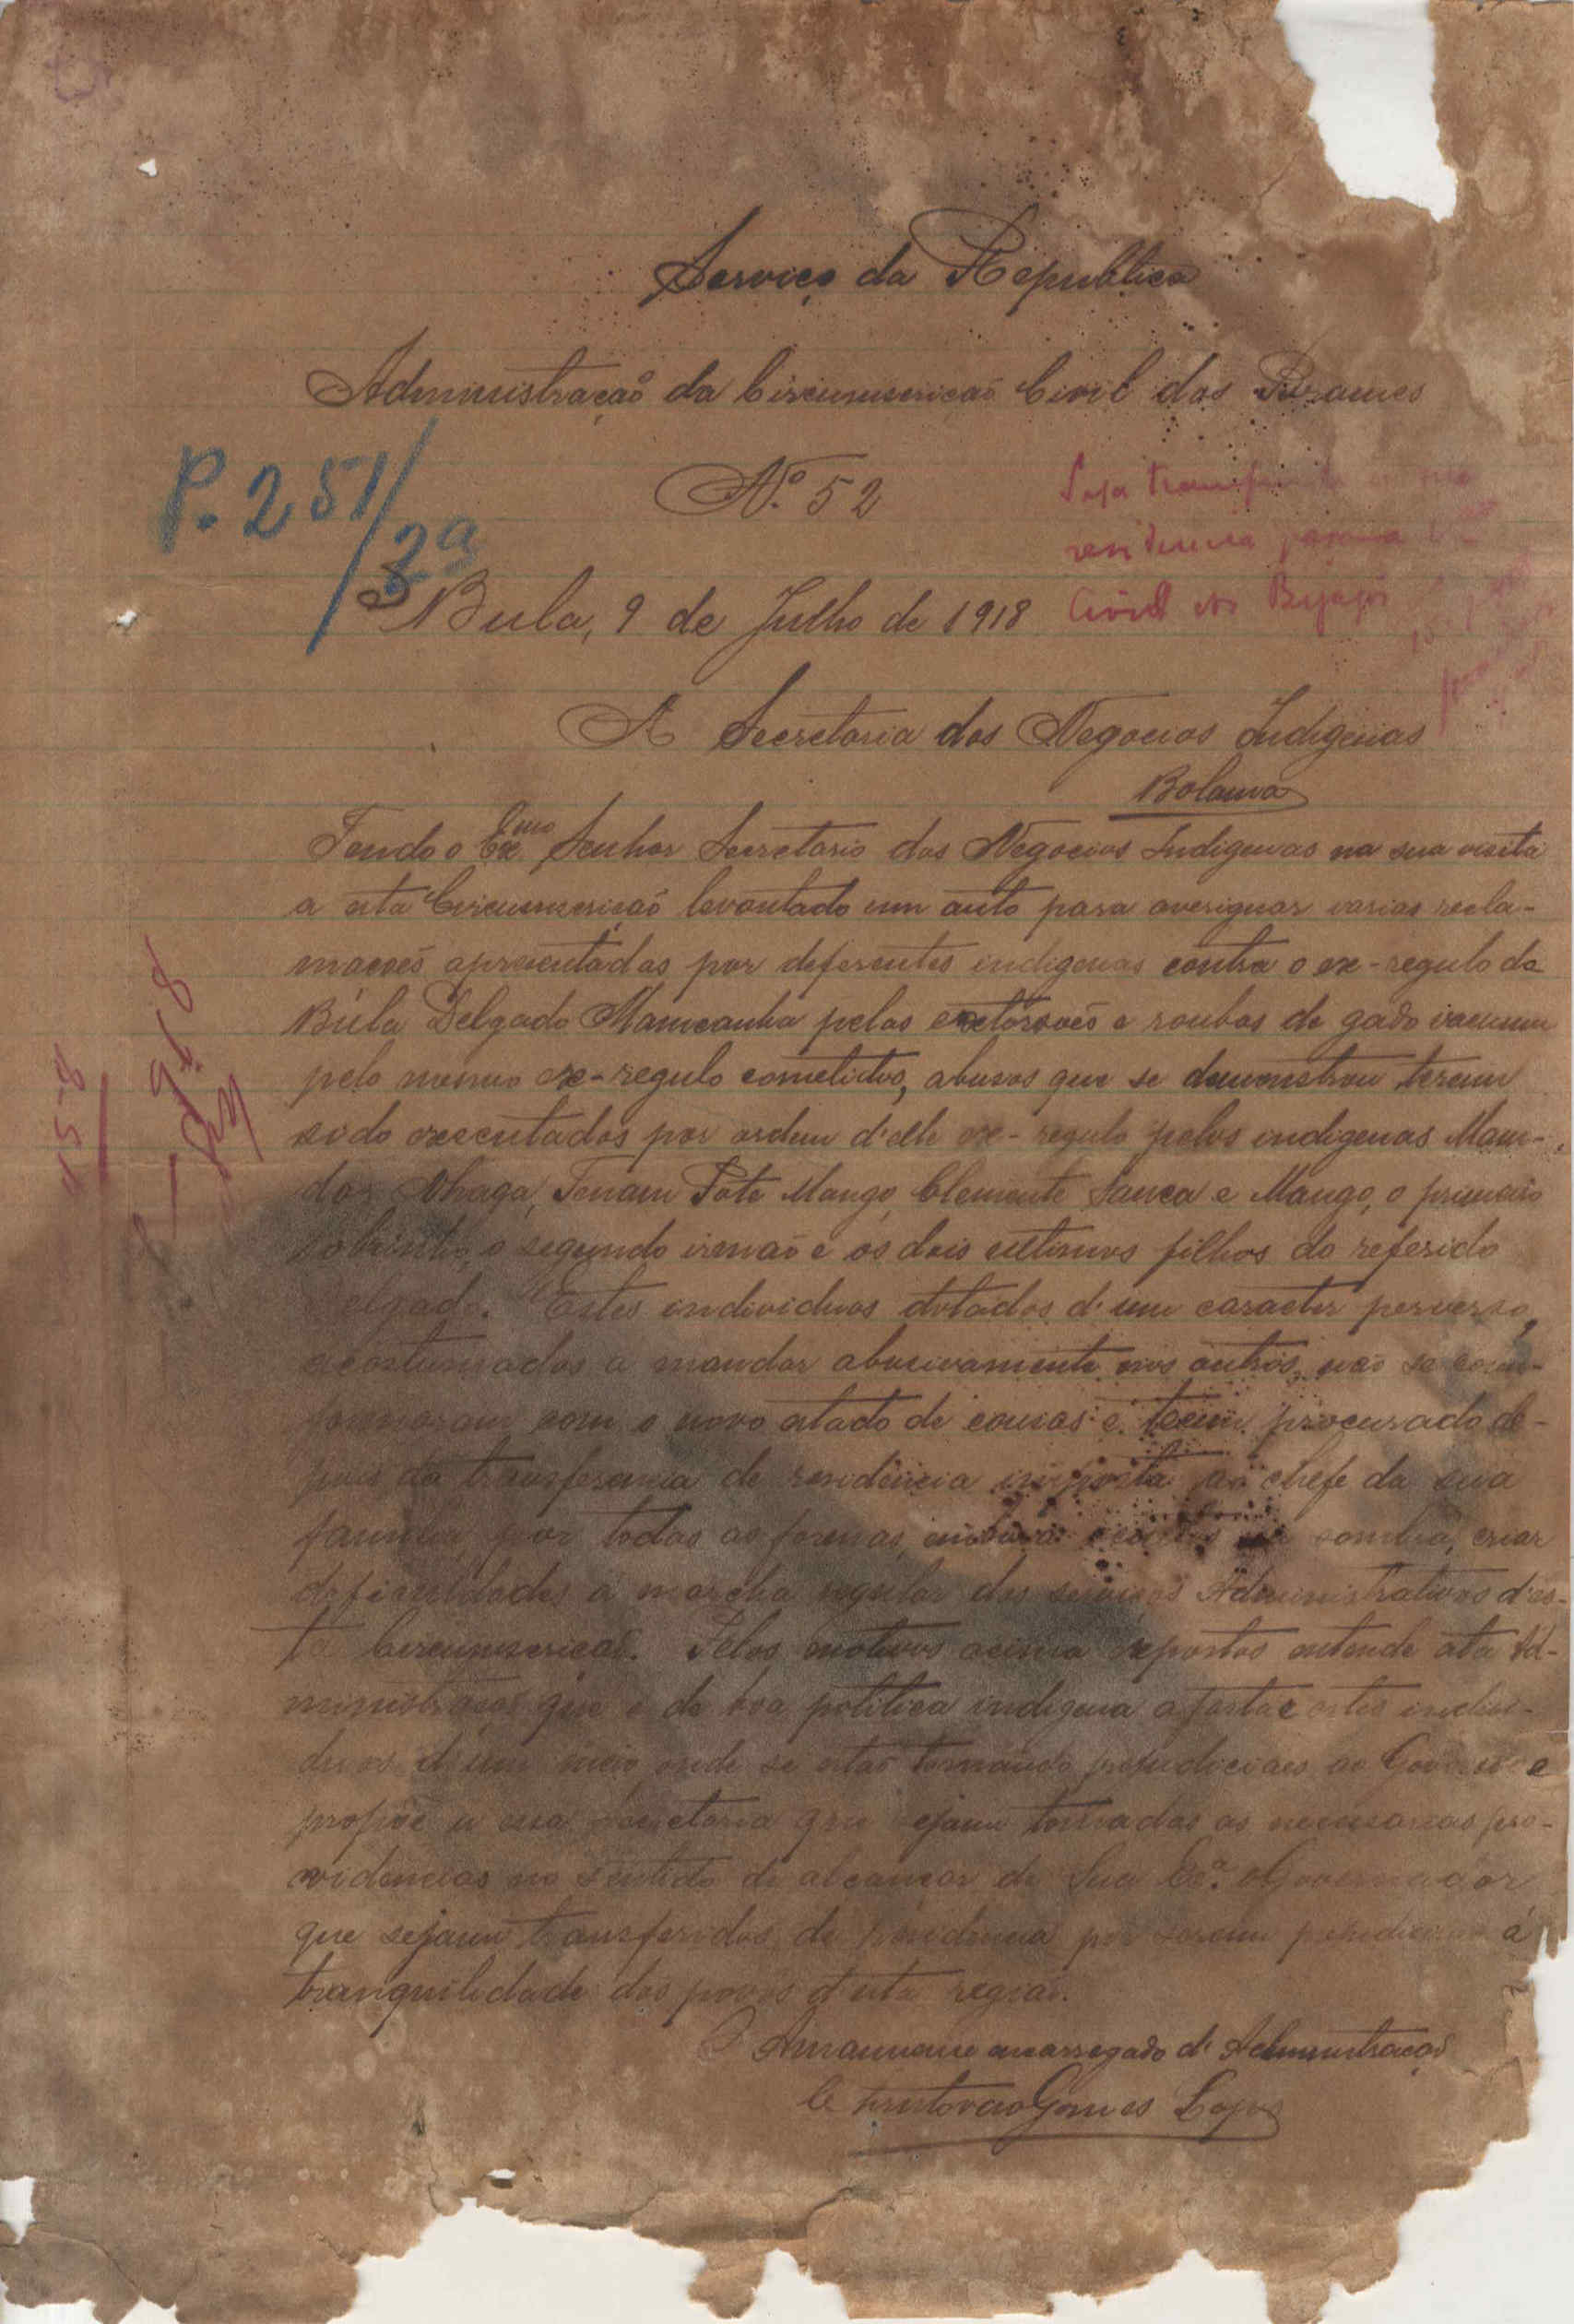 Serviço da Republica
Administração da Circunscrição Civil dos Brames
P. 251/2ª
Nº 52
Seja transferida a sua
residencia para a
Civil dos Bijagós
Bula, 9 de Julho de 1918
A Secretaria dos Negocios Indigenas
Bolama
Tendo o Exmo Senhor Secretario dos Negocios Indigenas na sua visita
a esta Circunscrição levantado um auto para averiguar varias recla-
mações apresentadas por deferentes indigenas contra o ex-regulo de
Bula Delgado Mancanha pelas extorsões e roubos de gado vacum
pelo mesmo ex-regulo cometidos, abusos que se demonstrou terem
sido executados por ordem d'elle ex-regulo pelos indigenas
Mango, Clemente Sanca e Mango, o primeiro
sobrinho, o segundo irmão e os dois ultimos filhos do referido
elgado. Estes individuos dotados d'um caracter perverso,
acostumados a mandar abusivamente nos outros, não se con-
formaram com o novo estado de cousas e teem procurado de-
pois da transferencia de residencia imposta ao chefe da sua
familia, por todas as formas, embora sombra, criar
deficuldades a marcha regular dos serviços Administrativos d'es-
ta Circunscrição. Pelos motivos acima expostos entende esta Ad-
ministração que é de boa politica indigena afastar estes indivi-
duos d'um meio onde se estão tornando prejudiciaes ao Governo e
propõe a essa Secretaria que sejam tomadas as necessarias pro-
videncias no sentido de alcançar de Sua Exª. o Governador
que sejam transferidos de residencia por serem prejudiciaes á
tranquilidade dos povos d'esta região.
O Amanuense encarregado d' Administração
Cristovão Gomes Lopes